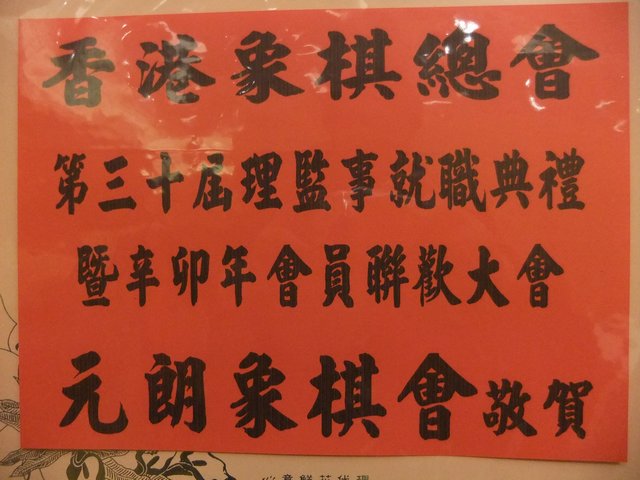 香港象棋總會
第三十屆理監事就職典禮
暨辛卯年會員聯歡大會
元朗象棋會敬賀